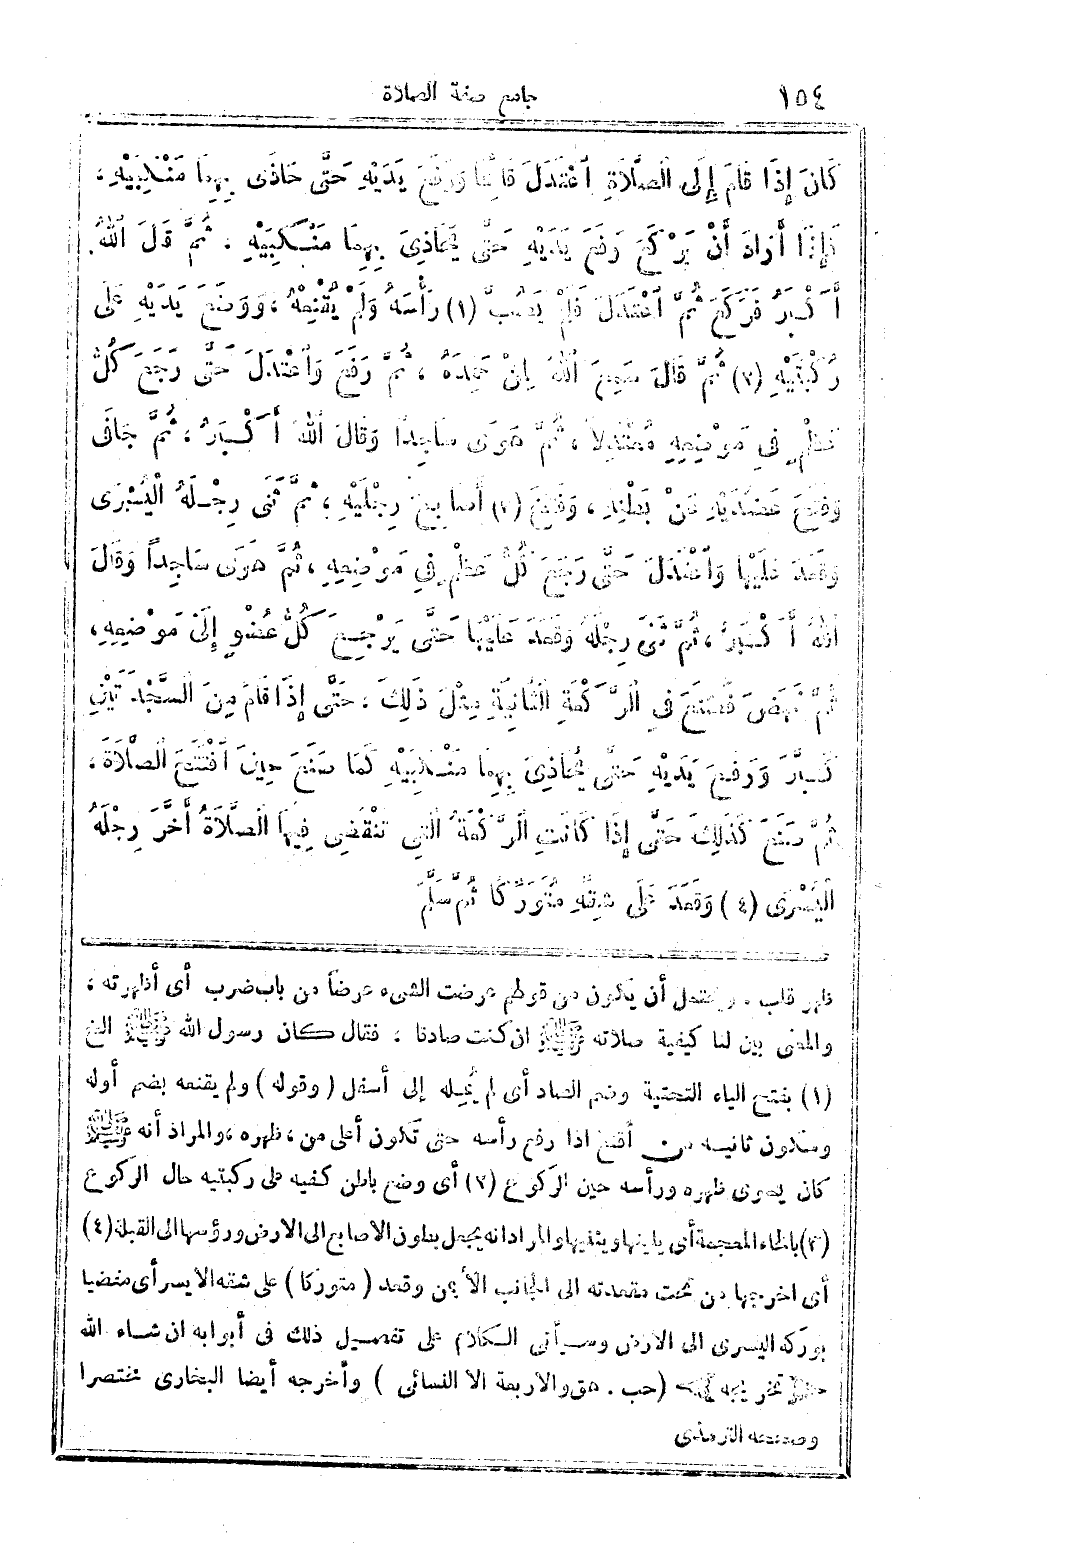 ١٥٤ جامع صفة الصلاة
كَانَ إِذَا قَامَ إِلَى الصَّلَاةِ اَعْتَدَلَ قَائِمًا وَرَفَعَ يَدَيْهِ حَتَّى حَاذَى بِهِمَا مَنْكِبَيْهِ ،
فَإِذَا أَرَادَ أَنْ يَرْكَعَ رَفَعَ يَدَيْهِ حَتَّى يُحَاذِىَ بِهِمَا مَنْكِبَيْهِ ، ثُمَّ قَالَ اللهُ
أَكْبَرُ فَرَكَعَ ثُمَّ اَعْتَدَلَ فَلَمْ يَصُبَّ (١) رَأْسَهُ وَلَمْ يُقْنِعْهُ ، وَوَضَعَ يَدَيْهِ عَلَى
رُكْبَتَيْهِ (٢) ثُمَّ قَالَ سَمِعَ اللهُ لِمَنْ حَمِدَهُ ، ثُمَّ رَفَعَ وَاَعْتَدَلَ حَتَّى رَجَعَ كُلُّ
عَظْمٍ فِي مَوْضِعِهِ مُعْتَدِلاً ، ثُمَّ هَوَى سَاجِدًا وَقَالَ اللهُ أَكْبَرُ ، ثُمَّ جَافَى
وَفَتَحَ عَضُدَيْهِ عَنْ بَطْنِهِ ، وَفَتَخَ (٣) أَصَابِعَ رِجْلَيْهِ ، ثُمَّ ثَنَى رِجْلَهُ الْيُسْرَى
وَقَعَدَ عَلَيْهَا وَاَعْتَدَلَ حَتَّى رَجَعَ كُلُّ عَظْمٍ فِي مَوْضِعِهِ ، ثُمَّ هَوَى سَاجِداً وَقَالَ
اللهُ أَكْبَرُ ، ثُمَّ ثَنَى رِجْلَهُ وَقَعَدَ عَلَيْهَا حَتَّى يَرْجِعَ كُلُّ عُضْوٍ إِلَى مَوْضِعِهِ ،
ثُمَّ نَهَضَ فَصَنَعَ فِي الرَّكْعَةِ الثَّانِيَةِ مِثْلَ ذَلِكَ ، حَتَّى إِذَا قَامَ مِنَ السَّجْدَتَيْنِ
كَبَّرَ وَرَفَعَ يَدَيْهِ حَتَّى يُحَاذِىَ بِهِمَا مَنْكِبَيْهِ كَمَا صَنَعَ حِينَ اَفْتَتَحَ الصَّلَاةَ ،
ثُمَّ صَنَعَ كَذَلِكَ حَتَّى إِذَا كَانَتِ الرَّكْعَةُ الَّتِي تَنْقَضِى فِيهَا الصَّلَاةُ أَخَّرَ رِجْلَهُ
الْيُسْرَى (٤) وَقَعَدَ عَلَى شِقِّهِ مُتَوَرِّكًا ثُمَّ سَلَّمَ
ظهر قلب . ويحتمل أن يكون من قولهم عرضت الشىء عرضاً من باب ضرب أى أظهرته ،
والمعنى بين لنا كيفية صلاته ﷺ ان كنت صادقا ، فقال كان رسول الله ﷺ الخ
(١) بفتح الياء التحتية وضم الصاد أى لم يمله إلى أسفل ( وقوله ) ولم يقنعه بضم أوله
وسكون ثانيه من أقنع اذا رفع رأسه حتى تكون أعلى من ، ظهره ، والمراد أنه ﷺ
كان يسوى ظهره ورأسه حين الركوع (٢) أى وضع باطن كفيه على ركبتيه حال الركوع
(٣) بالخاء المعجمة أى يلينها ويثنيها والمراد انه يجعل بطون الاصابع الى الارض ورؤسها الى القبلة (٤)
أى اخرجها من تحت مقعدته الى الجانب الأيمن وقعد ( متوركا ) على شقه الايسر أى مفضيا
بوركه اليسرى الى الارض وسيأتى الكلام على تفصيل ذلك فى أبوابه ان شاء الله
تخريجه (حب . هق والاربعة الا النسائى ) وأخرجه أيضا البخارى مختصرا
وصححه الترمذى